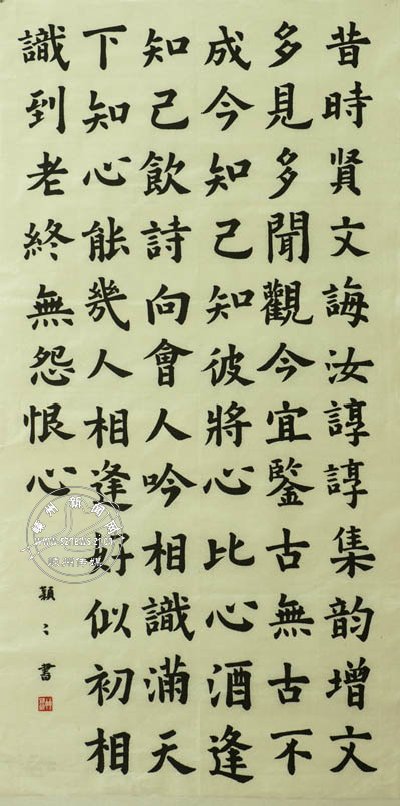 昔時賢文誨汝諄諄集韵增文
多見多聞觀今宜鑒古無古不
成今知己知彼將心比心酒逢
知己飲詩向會人吟相識滿天
下知心能幾人相逢好似初相
識到老終無怨恨心
穎〻書